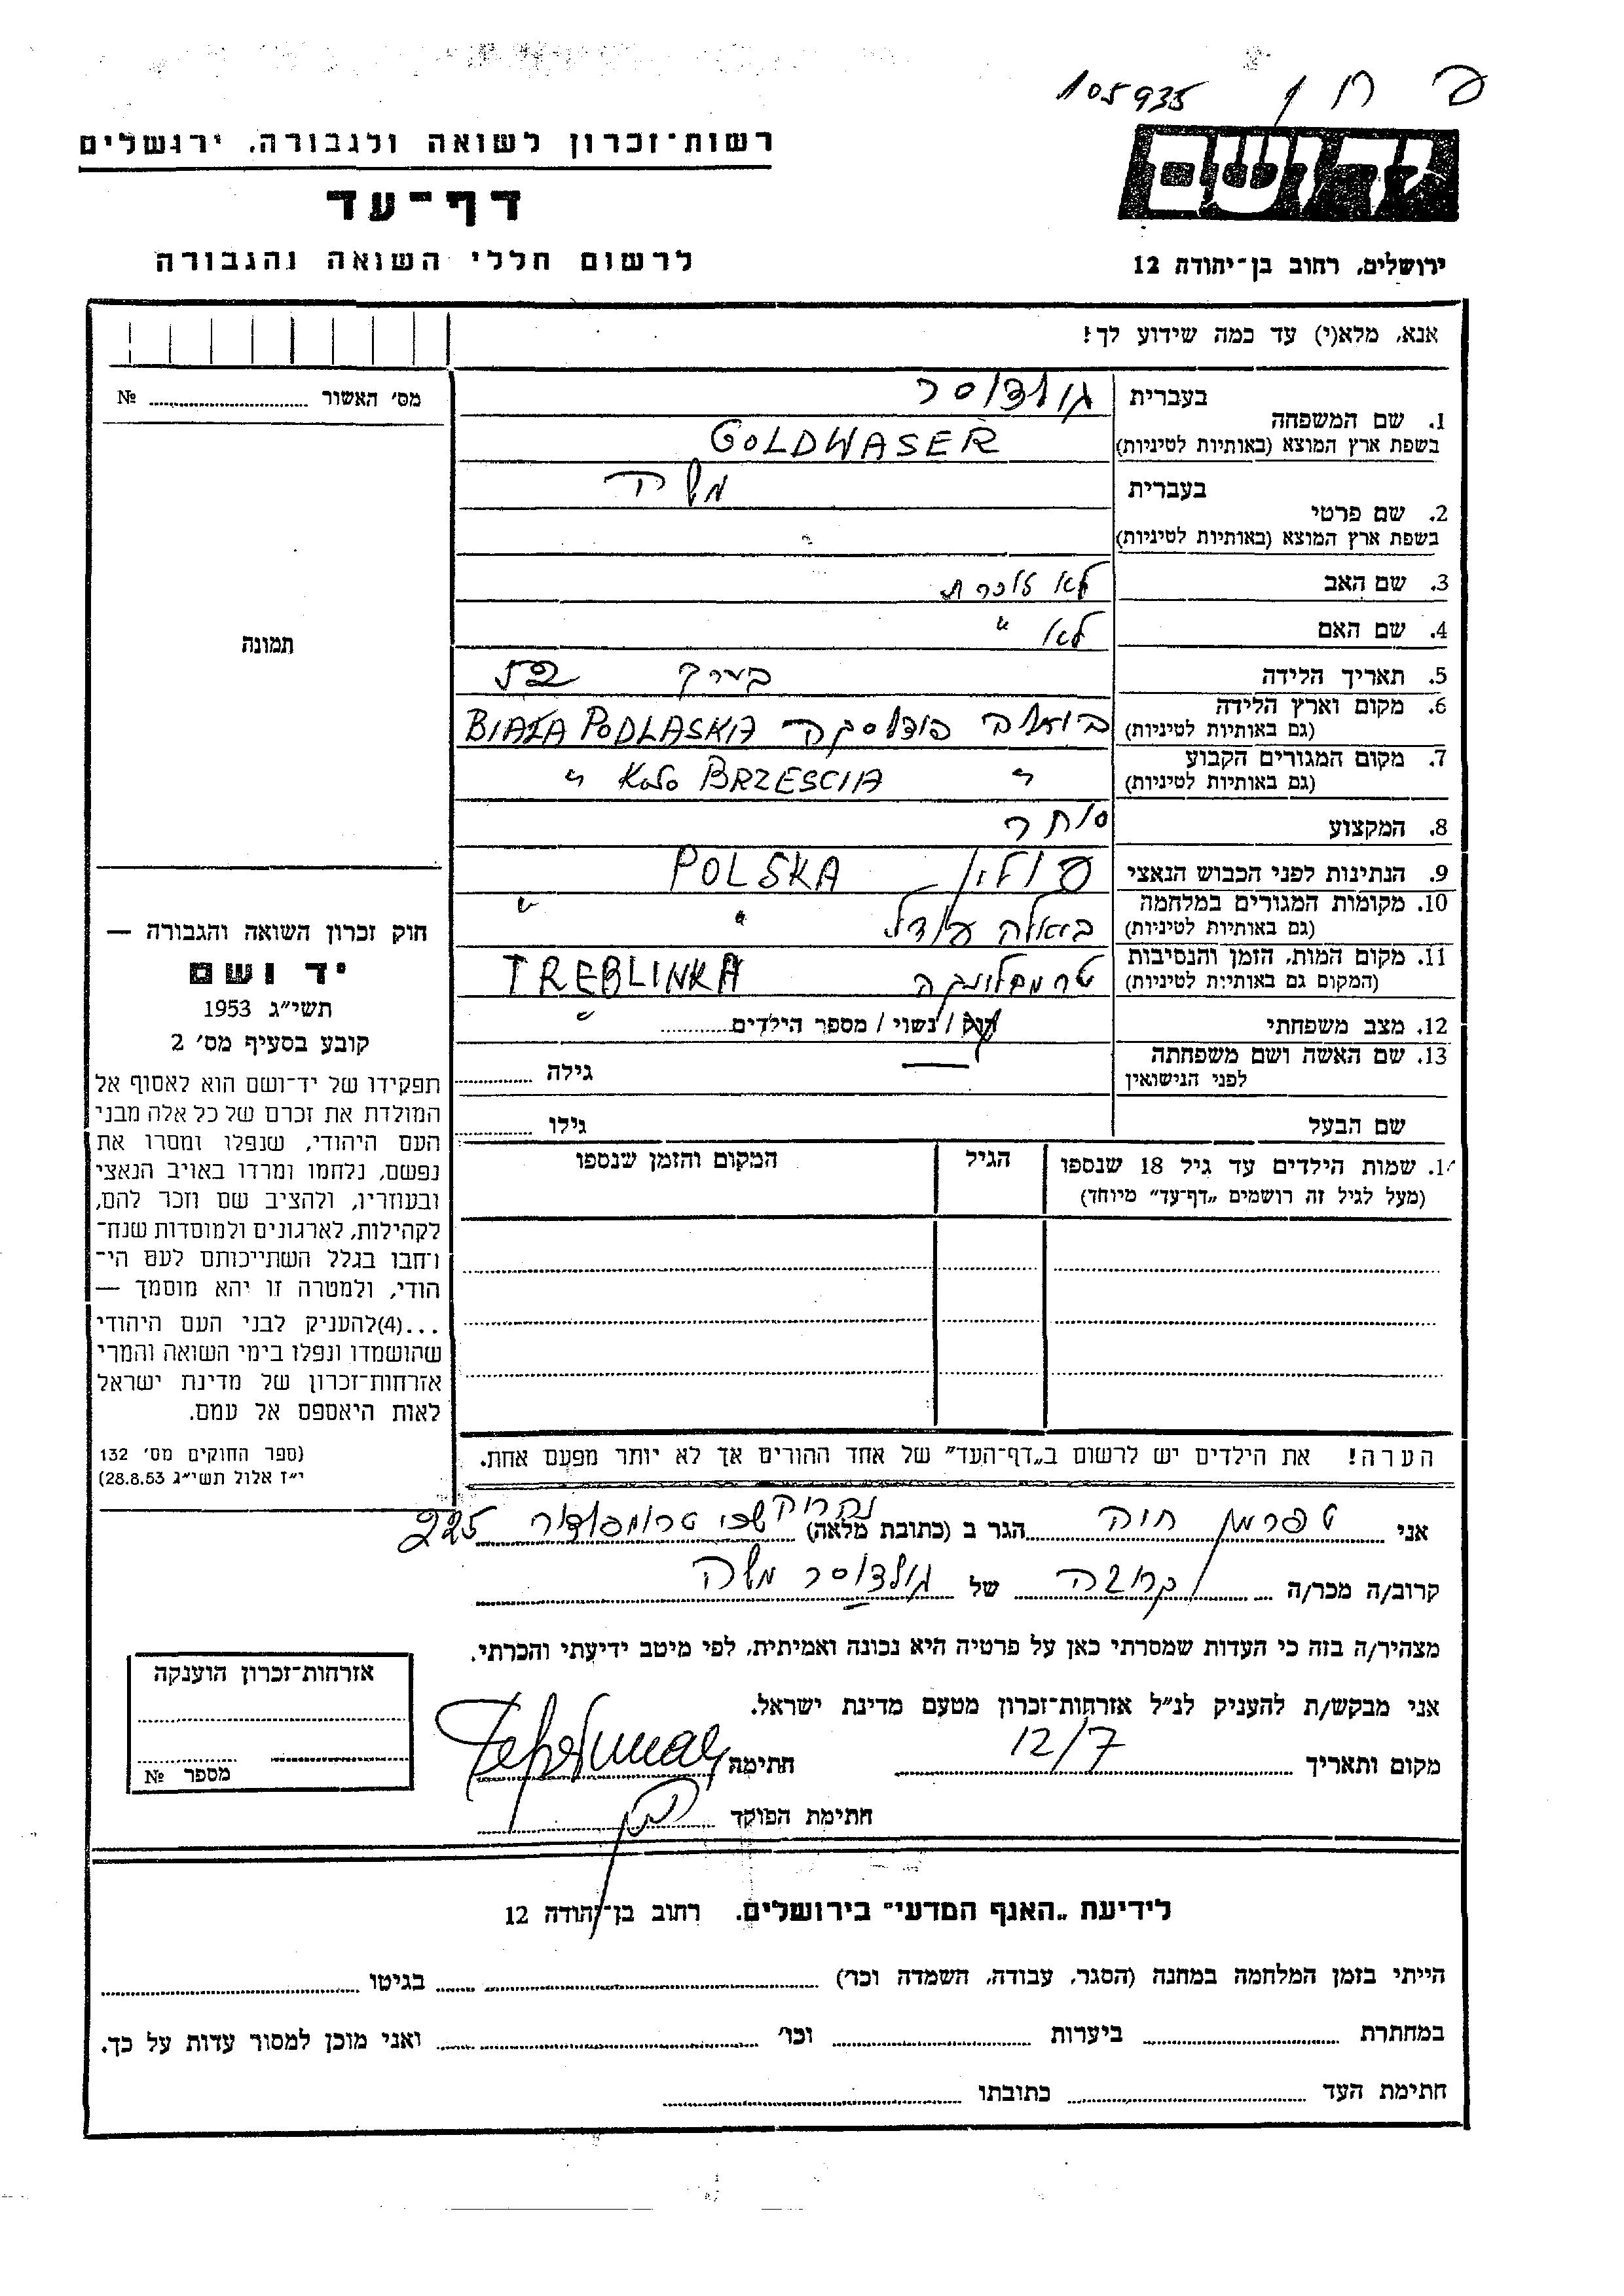 105935
רשות־זכרון לשואה ולגבורה, ירושלים
דף־עד
לרשום חללי השואה והגבורה
יד ושם
ירושלים, רחוב בן־יהודה 12
אנא, מלא(י) עד כמה שידוע לך!
מס׳ האשור № 
תמונה
1. שם המשפחה
בעברית גולדוסר
בשפת ארץ המוצא (באותיות לטיניות) GOLDWASER
2. שם פרטי
בעברית משה
בשפת ארץ המוצא (באותיות לטיניות)
3. שם האב לא זוכרת
4. שם האם לא "
5. תאריך הלידה בערך
6. מקום וארץ הלידה (גם באותיות לטיניות) פודלסקה BIAŁA PODLASKA
7. מקום המגורים הקבוע (גם באותיות לטיניות) " KOŁO BRZESCIA "
8. המקצוע סוחר
9. הנתינות לפני הכבוש הנאצי פולין POLSKA
10. מקומות המגורים במלחמה (גם באותיות לטיניות) ביאלה פודל " "
11. מקום המות, הזמן והנסיבות (המקום גם באותיות לטיניות) טרמבלינקה TREBLINKA
12. מצב משפחתי רווק / נשוי / מספר הילדים
13. שם האשה ושם משפחתה לפני הנישואין — גילה
שם הבעל גילו
14. שמות הילדים עד גיל 18 שנספו
(מעל לגיל זה רושמים „דף־עד” מיוחד)
הגיל
המקום והזמן שנספו
חוק זכרון השואה והגבורה —
יד ושם
תשי״ג 1953
קובע בסעיף מס׳ 2
תפקידו של יד־ושם הוא לאסוף אל
המולדת את זכרם של כל אלה מבני
העם היהודי, שנפלו ומסרו את
נפשם, נלחמו ומרדו באויב הנאצי
ובעוזריו, ולהציב שם וזכר להם,
לקהילות, לארגונים ולמוסדות שנח־
רבו בגלל השתייכותם לעם הי־
הודי, ולמטרה זו יהא מוסמך —
...(4)להעניק לבני העם היהודי
שהושמדו ונפלו בימי השואה והמרי
אזרחות־זכרון של מדינת ישראל
לאות היאספם אל עמם.
(ספר החוקים מס׳ 132
י״ז אלול תשי״ג 28.8.53)
הערה! את הילדים יש לרשום ב„דף־העד” של אחד ההורים אך לא יותר מפעם אחת.
אני טפרמן חיה הגר ב (כתובת מלאה) טרומפלדור 225
קרוב/ה מכר/ה קרובה של גולדוסר משה
מצהיר/ה בזה כי העדות שמסרתי כאן על פרטיה היא נכונה ואמיתית, לפי מיטב ידיעתי והכרתי.
אני מבקש/ת להעניק לנ״ל אזרחות־זכרון מטעם מדינת ישראל.
מקום ותאריך 12/7 חתימה
חתימת הפוקד
אזרחות־זכרון הוענקה
מספר №
לידיעת „האגף המדעי” בירושלים. רחוב בן־יהודה 12
הייתי בזמן המלחמה במחנה (הסגר, עבודה, השמדה וכו׳) בגיטו
במחתרת ביערות וכו׳ ואני מוכן למסור עדות על כך.
חתימת העד כתובתו